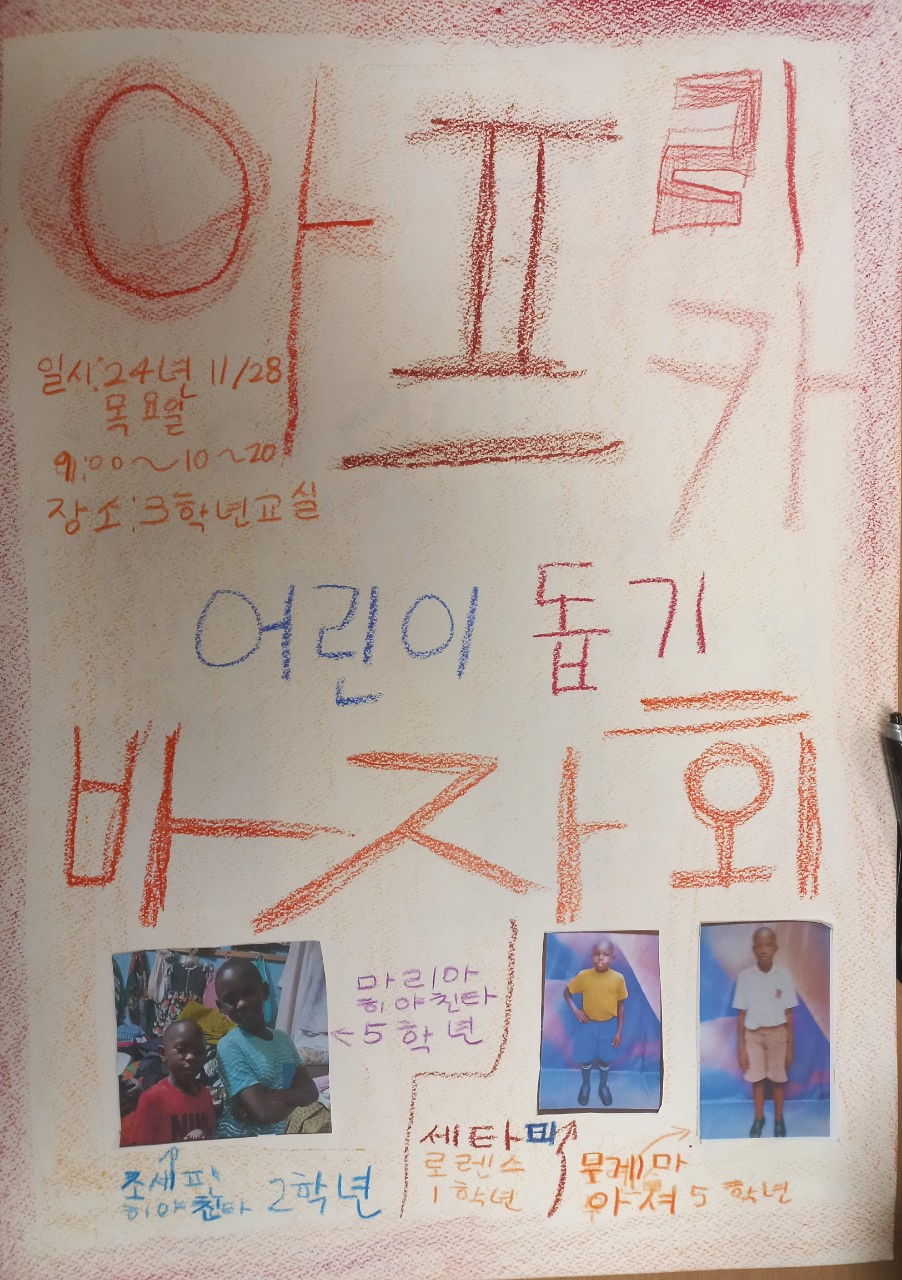 아프리카
일시:24년 11/28
목요일
9:00~10~20
장소:3학년교실
어린이 돕기
바자회
마리아
히야친타
←5학년
조세핀
히야친타 2학년
세타
로렌스
1학년
뭉게마
아셔 5학년